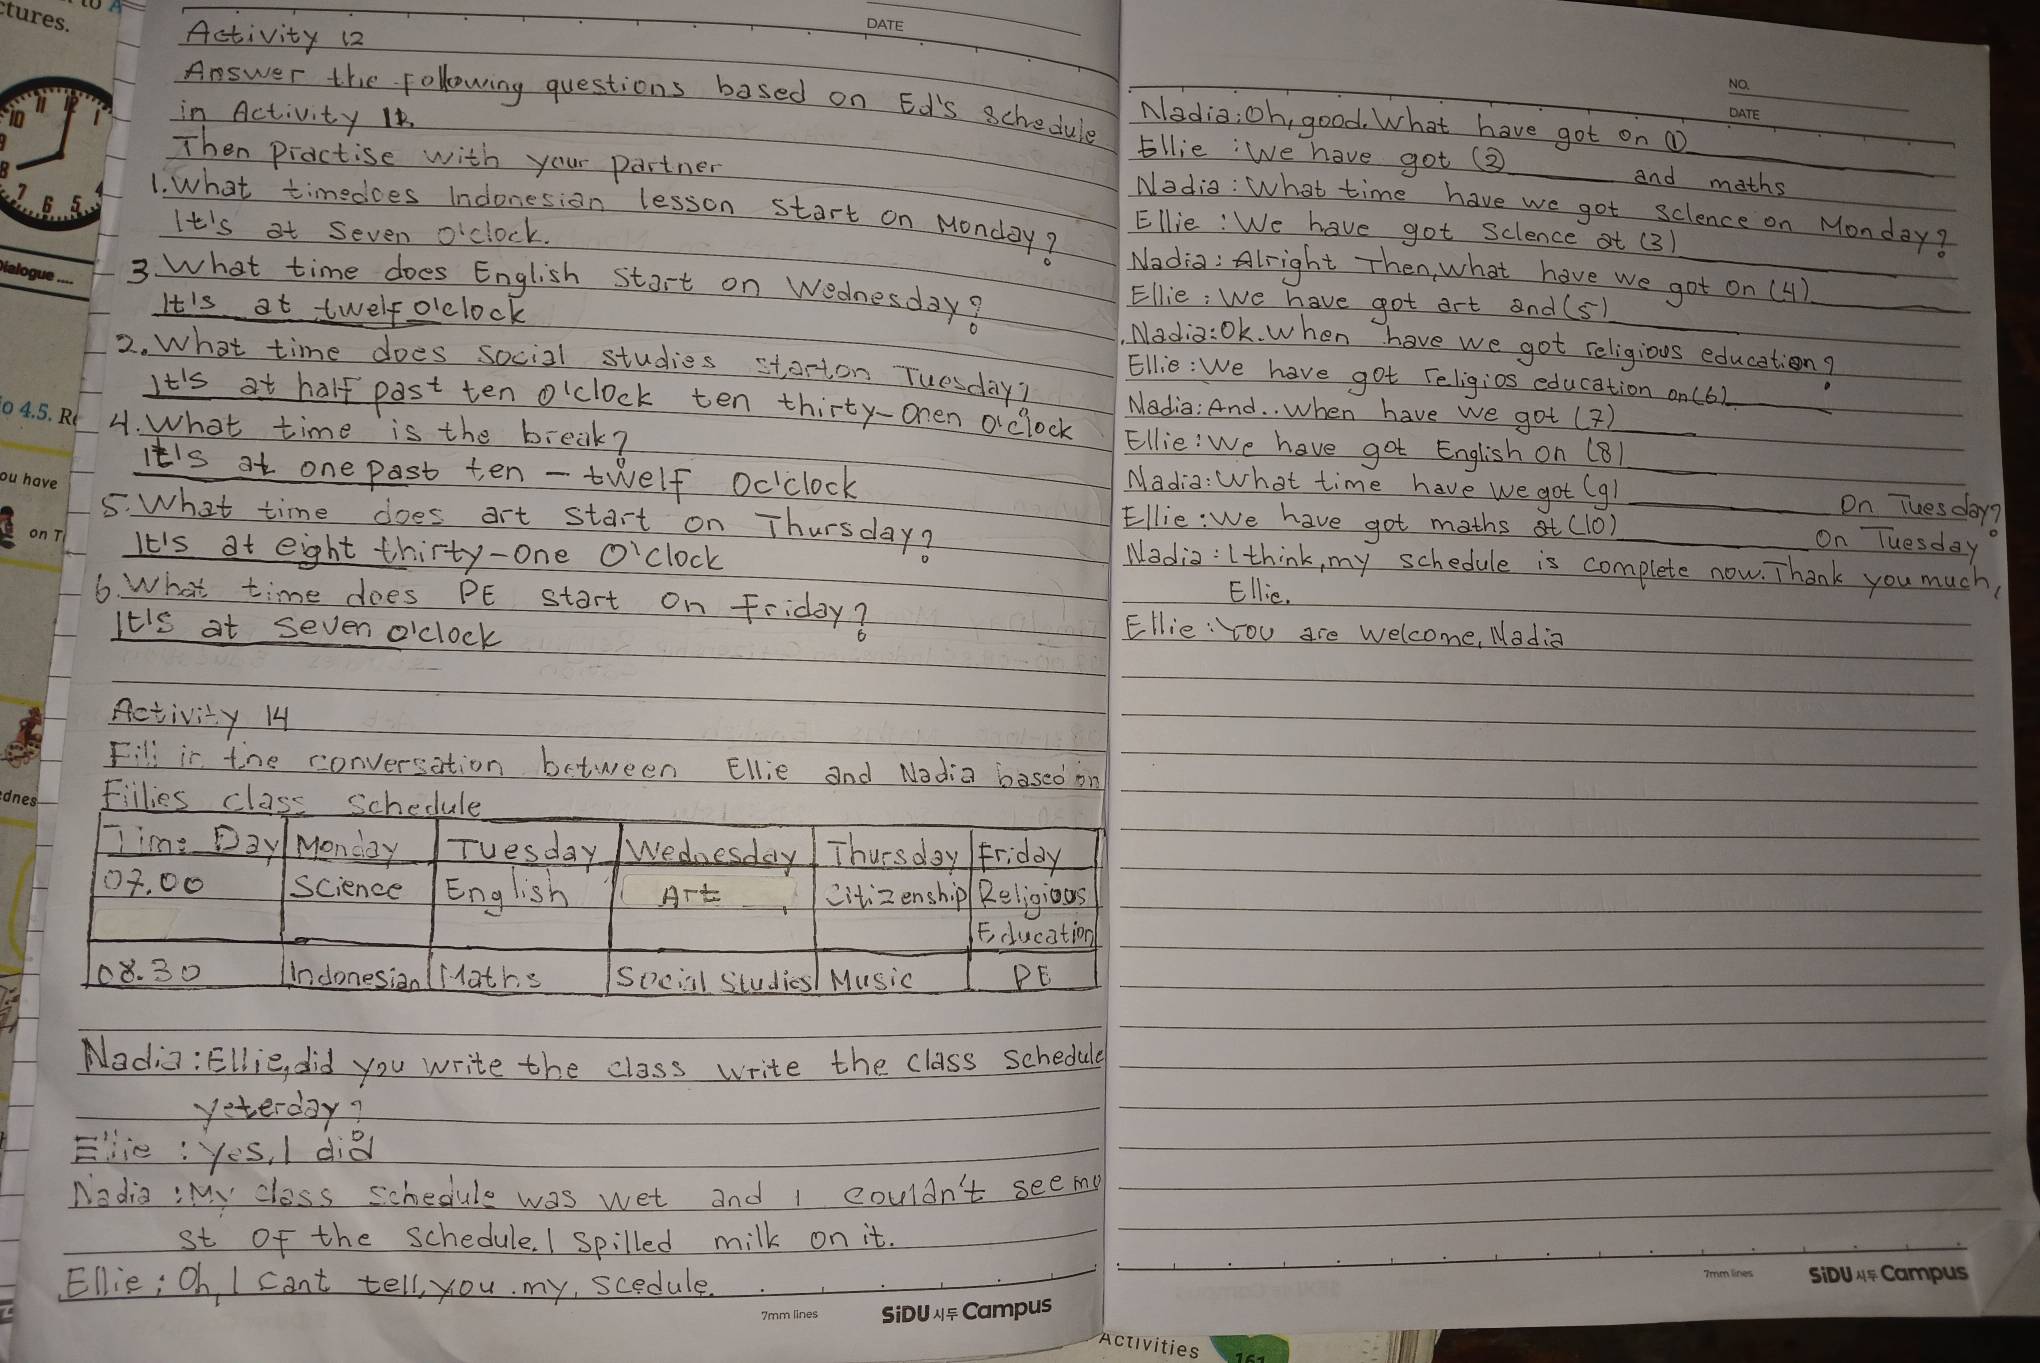 ctures.
to A
10 11 12 1
9
8
7 6 5 4
Dialogue ....
io 4.5. Re
ou have
on T
ednes
DATE
Activity 12
Answer the following questions based on Ed's schedule
in Activity 11.
Then Practise with your partner
1. What timedoes Indonesian lesson start on Monday?
It's at seven o'clock.
3. What time does English start on Wednesday?
It's at twelf o'clock
2. What time does social studies starton Tuesday?
It's at half past ten o'clock ten thirty-onen o'clock
4. What time is the break?
It's at one past ten - twelf oc'clock
5. What time does art start on Thursday?
It's at eight thirty-one o'clock
6. What time does PE start on Friday?
It's at seven o'clock
Activity 14
Fill in the conversation between Ellie and Nadia based on
Fillies class schedule
Time Day Monday Tuesday Wednesday Thursday Friday
07.00 Science English Art Citizenship Religious
Education
08.30 Indonesian Maths Social Studies Music PE
Nadia: Ellie, did you write the class write the class schedule
yeterday?
Ellie: Yes, I did
Nadia: My class schedule was wet and I couldn't see mo
st of the schedule. I spilled milk on it.
Ellie: Oh, I cant tell, you. my, scedule.
7mm lines SiDU 시두 Campus
NO.
DATE
Nadia: Oh, good. What have got on ①
Ellie: We have got (2 and maths
Nadia: What time have we got sclence on Monday?
Ellie: We have got Sclence at (3)
Nadia: Alright Then, what have we got on (4)
Ellie: We have got art and (5)
Nadia: Ok. When have we got religious education?
Ellie: We have got religios education on (6)
Nadia: And.. when have we got (7)
Ellie: We have got English on (8)
Nadia: What time have we got (9) On Tuesday?
Ellie: We have got maths at (10) On Tuesday
Nadia: I think, my schedule is complete now. Thank you much,
Ellie.
Ellie: You are welcome, Nadia
7mm lines SiDU 시두 Campus
Activities 161